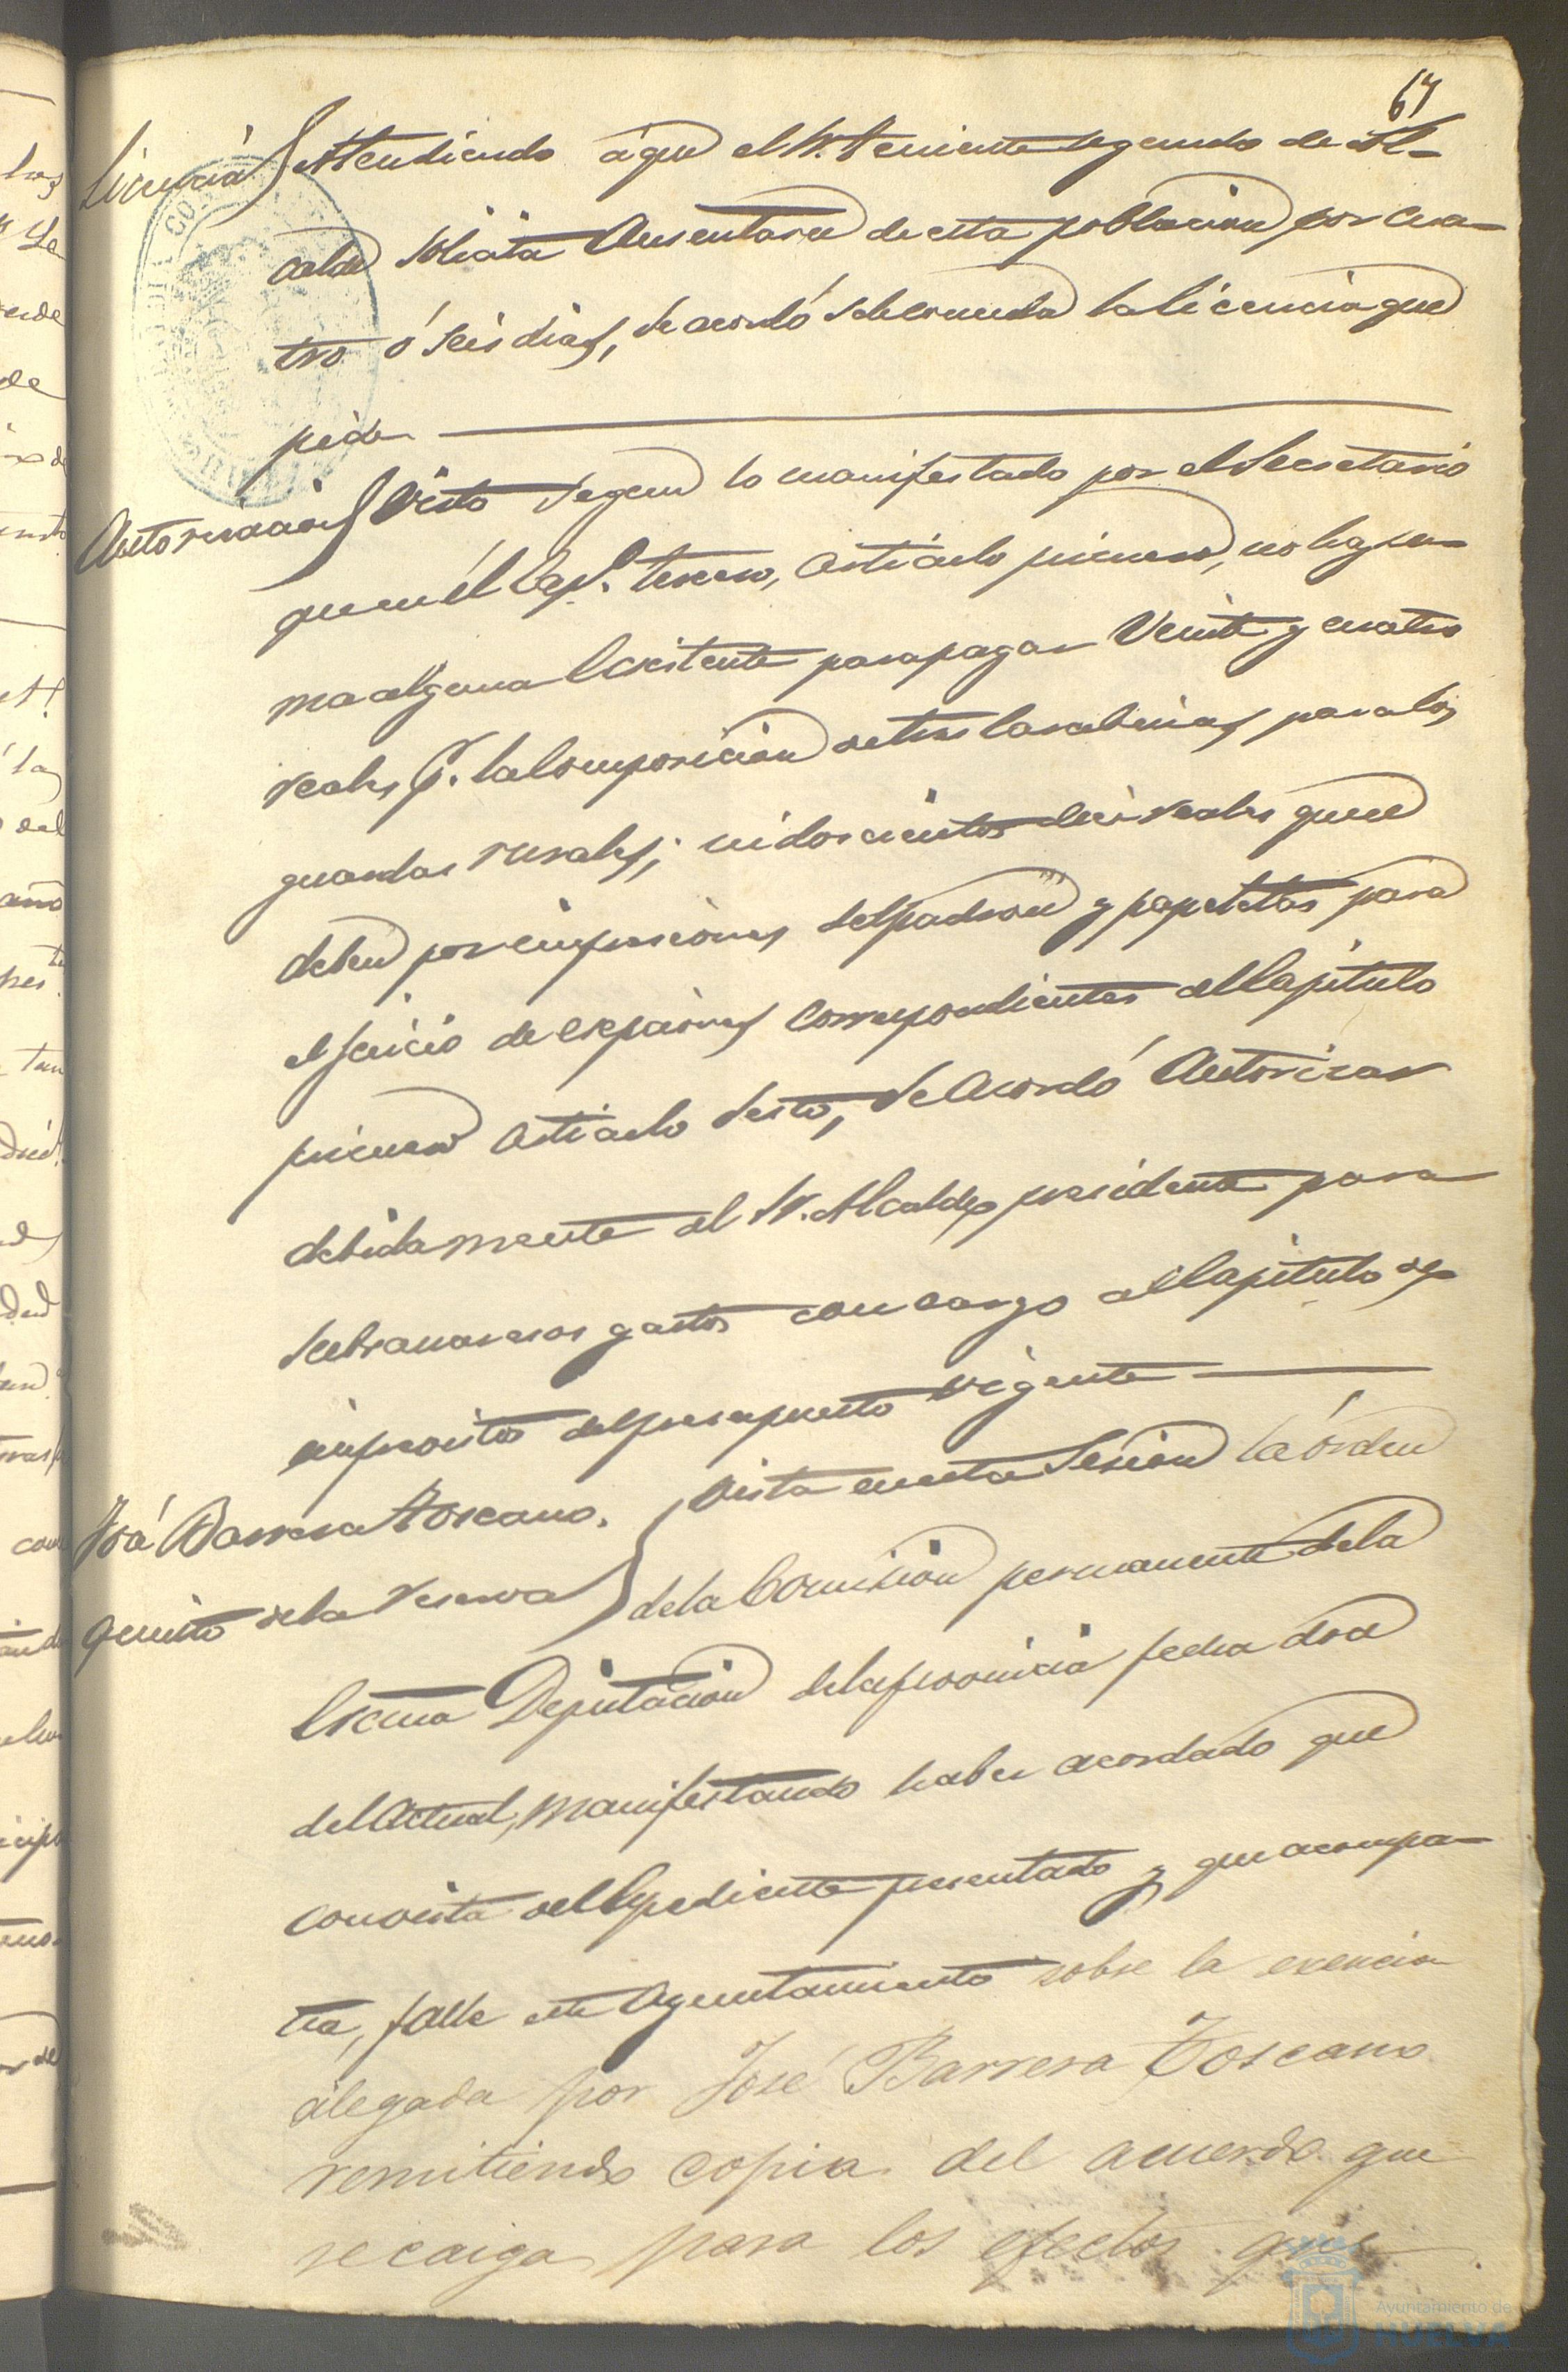 67
Licencia } Atendiendo á que el Sr. Teniente segundo de Al-
calde solicita Ausentarse de esta poblacion por cua-
tro ó seis dias, se acordó se le conceda la licencia que
pide
Autorizacion } Visto segun lo manifestado por el Secretario
que en él Cap.º tercero, artículo primero, no hay su-
ma alguna Existente para pagar Veinte y cuatro
reales p.r la Composicion de tres Carabinas para los
guardas rurales; ni doscientos diez reales que se
deben por impresiones del padron y papeletas para
el juicio de exepciones Correspondientes al Capitulo
primero articulo Sesto, Se Acordó Autorizar
debidamente al Sr. Alcalde presidente para
sebranar esos gastos con cargo al Capitulo de
imprevistos del presupuesto vigente
José Barrera Toscano. } Vista en esta Sesion la órden
quinto de la reserva } de la Comision permanente de la
Excma Diputacion de la provincia fecha dos
del Actual, manifestando haber acordado que
con vista del Expediente presentado y que acompa-
ña, falle este Ayuntamiento sobre la exencion
alegada por José Barrera Toscano
remitiendo copia del acuerdo que
recaiga para los efectos que
Ayuntamiento de
HUELVA